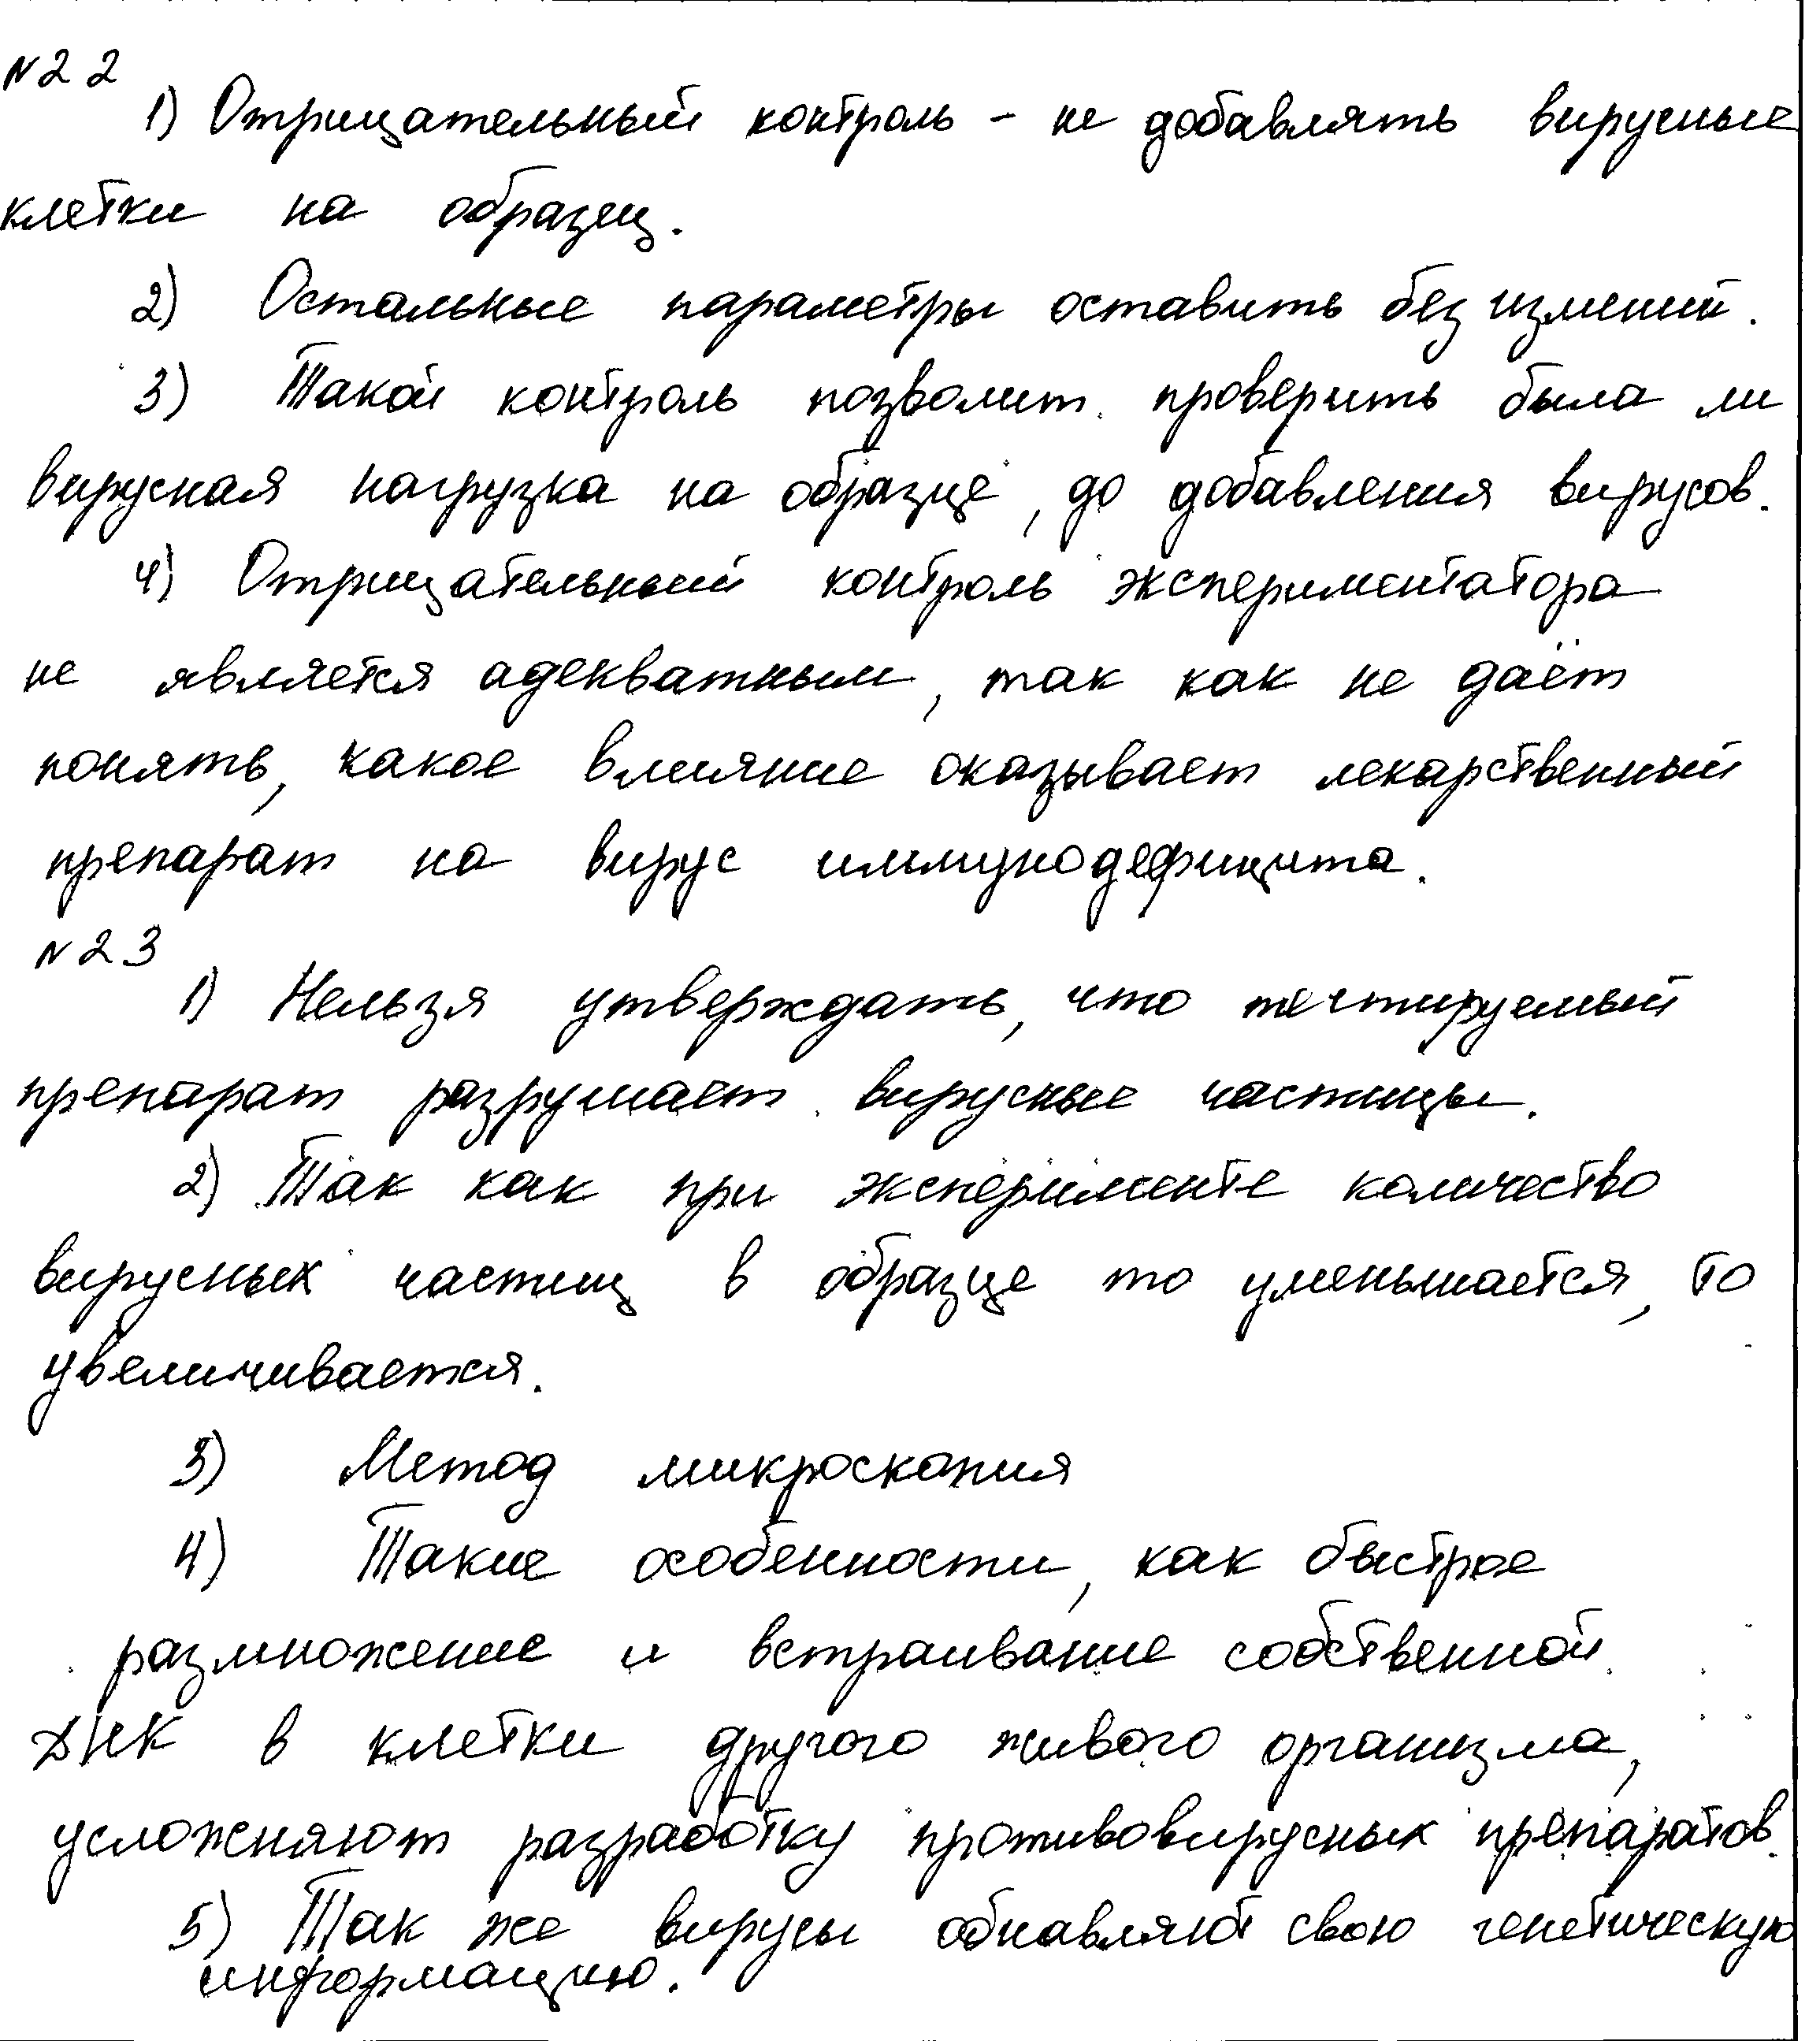 №22
1) Отрицательный контроль - не добавлять вирусные
клетки на образец.
2) Остальные параметры оставить без измений.
3) Такой контроль позволит проверить была ли
вирусная нагрузка на образце, до добавления вирусов.
4) Отрицательный контроль экспериментатора
не является адекватным, так как не даёт
понять, какое влияние оказывает лекарственный
препарат на вирус иммунодефицита.
№23
1) Нельзя утверждать, что тестируемый
препарат разрушает вирусные частицы.
2) Так как при эксперименте количество
вирусных частиц в образце то уменьшается, то
увеличивается.
3) Метод микроскопия
4) Такие особенности, как быстрое
размножение и встраивание собственной
ДНК в клетки другого живого организма,
усложняют разработку противовирусных препаратов.
5) Так же вирусы обнавляют свою генетическую
информацию.